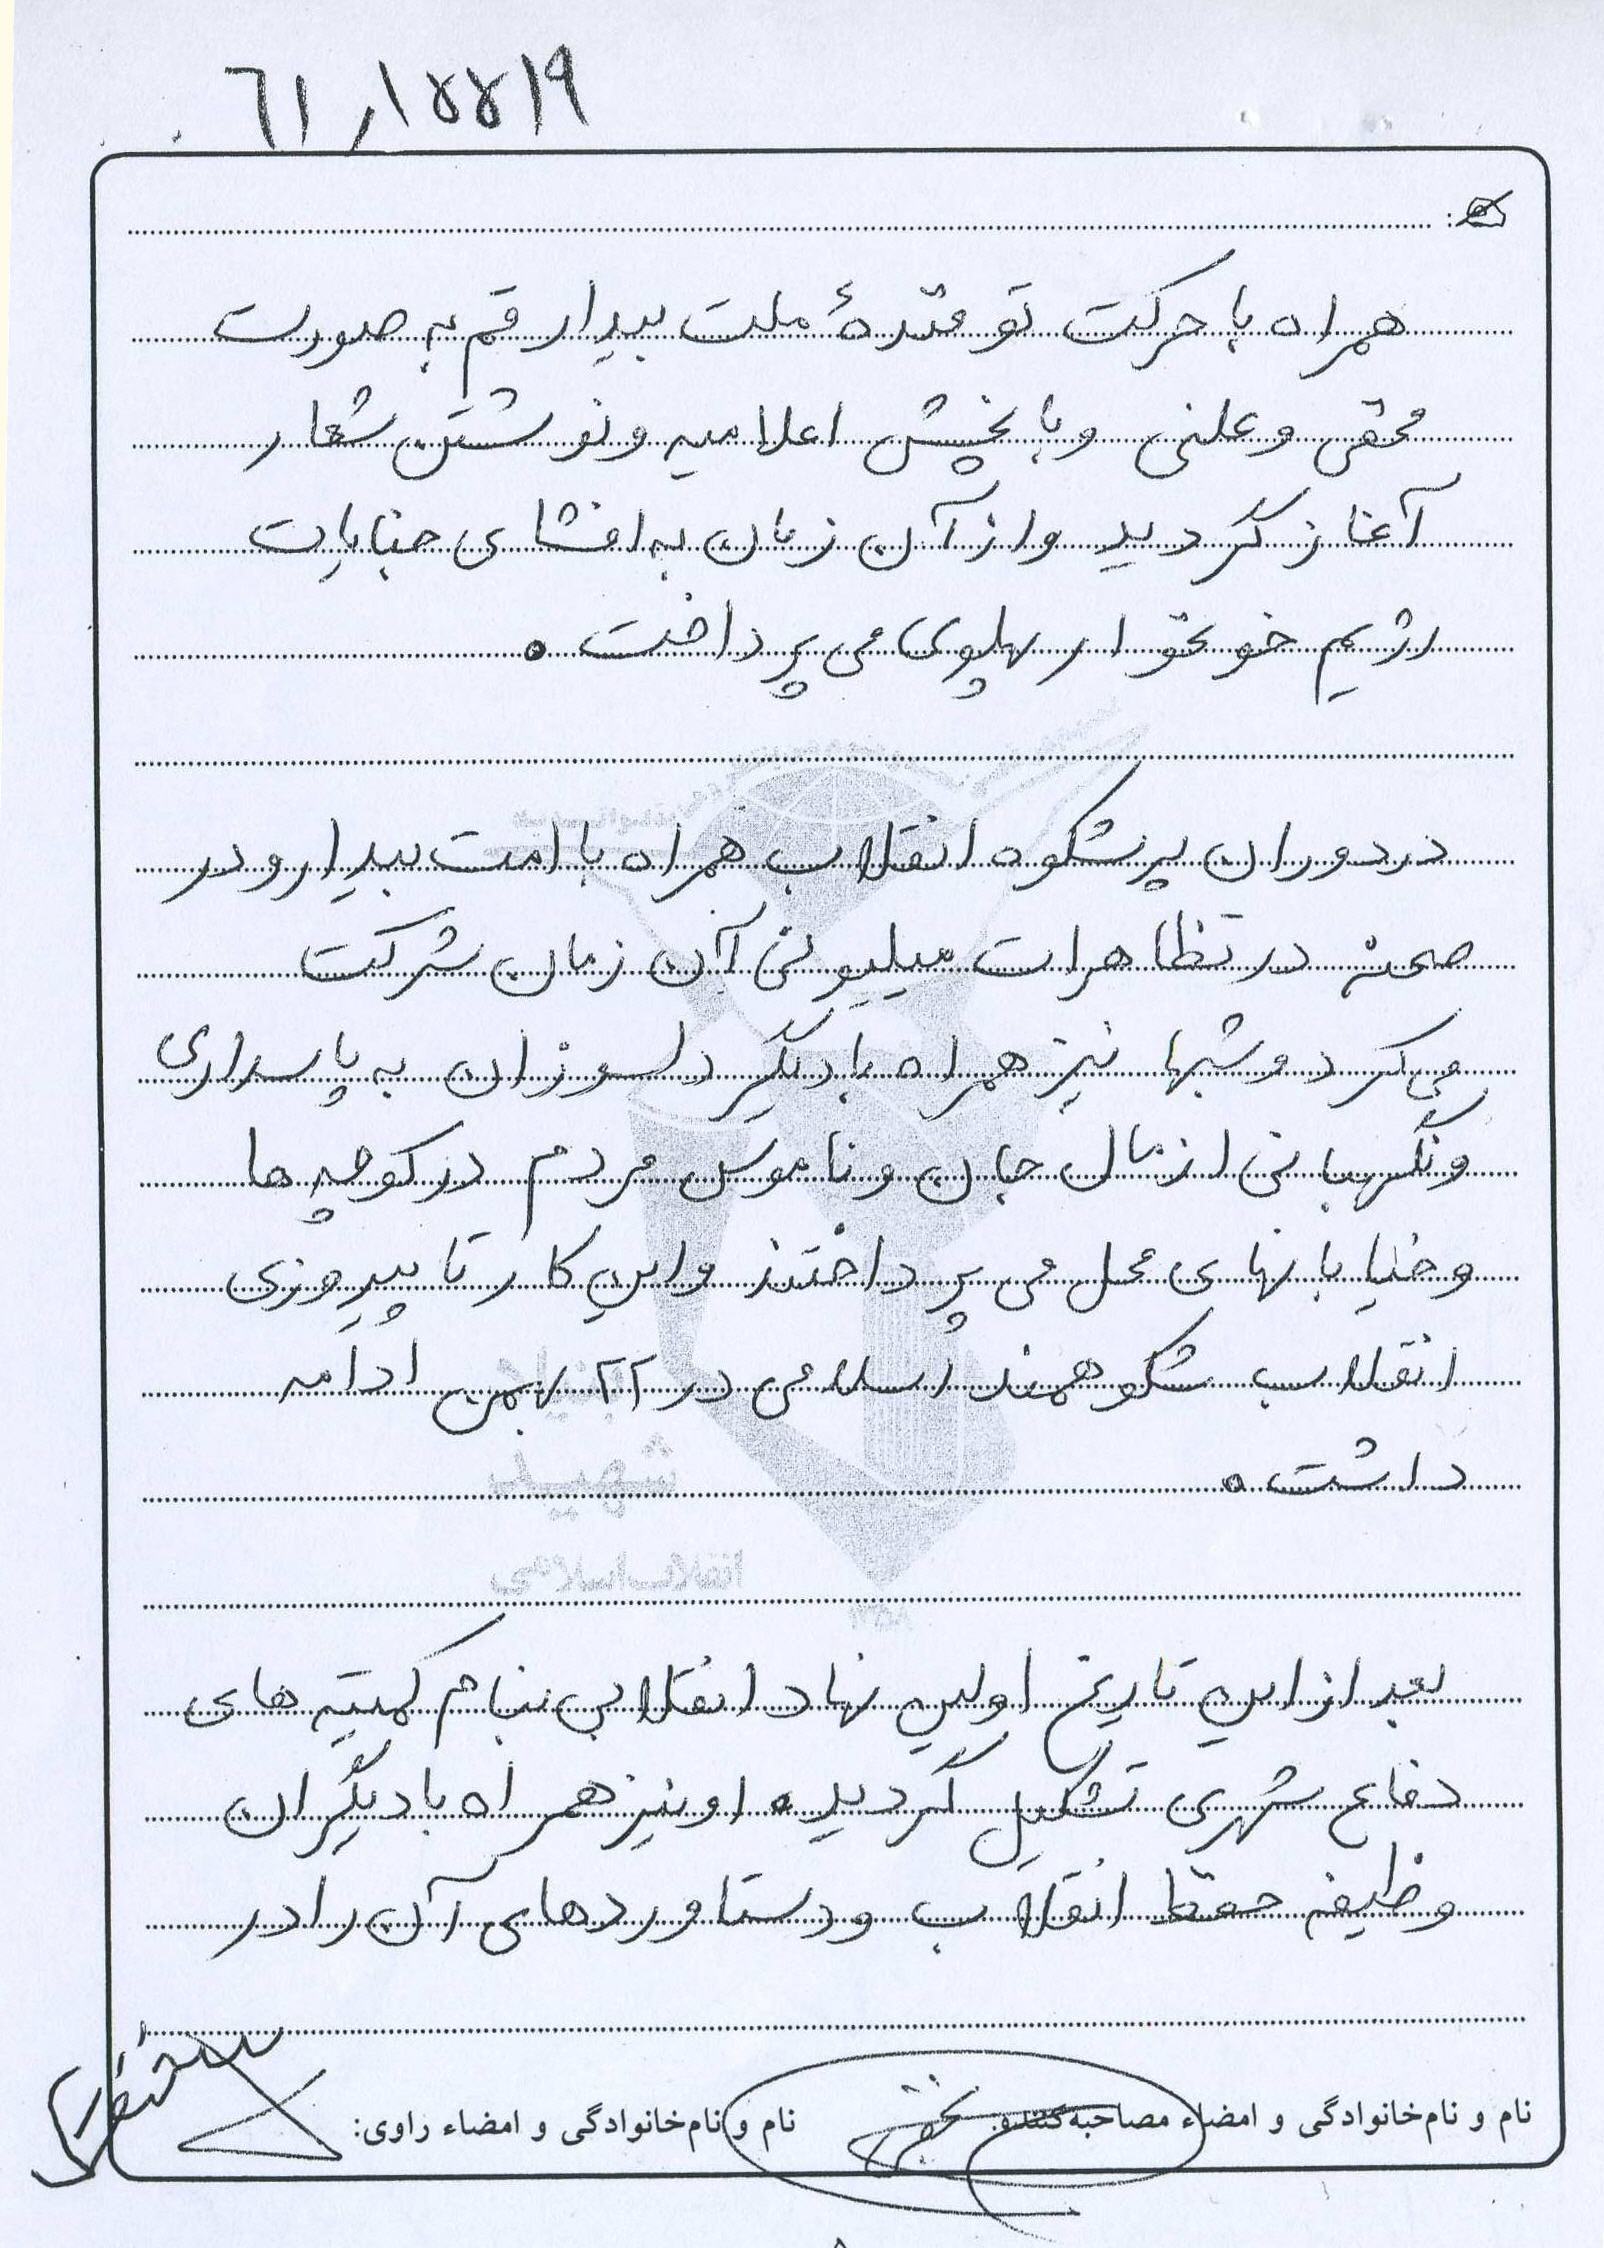 ۶۱ر۱۵۵۱۹
همراه با حرکت توفندهٔ ملت بیدار قم به صورت
مخفی و علنی و با پخش اعلامیه و نوشتن شعار
آغاز گردید و از آن زمان به افشای جنایات
رژیم خونخوار پهلوی می پرداخت.
در دوران پرشکوه انقلاب همراه با امت بیدار و در
صحنه در تظاهرات میلیونی آن زمان شرکت
می کرد و شبها نیز همراه با دیگر دلسوزان به پاسداری
و نگهبانی از مال جان و ناموس مردم در کوچه ها
و خیابانهای محل می پرداختند و این کار تا پیروزی
انقلاب شکوهمند اسلامی در ۲۲ بهمن ادامه
داشت.
شهید
انقلاب اسلامی
بعد از این تاریخ اولین نهاد انقلابی بنام کمیته های
دفاع شهری تشکیل گردید. او نیز همراه با دیگران
وظیفه حفظ انقلاب و دستاوردهای آن را در
نام و نام‌خانوادگی و امضاء مصاحبه‌کننده: نام و نام‌خانوادگی و امضاء راوی: